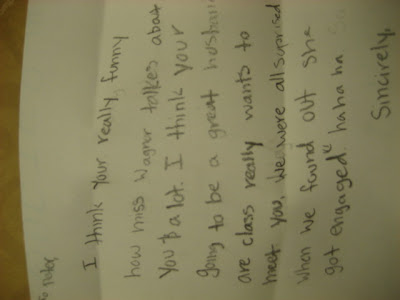 I think your really funny
how miss Wagner talkes about
you a lot. I think your
going to be a great husban
are class really wants to
meet you, we were all suprised
when we found out she
got engaged. hahaha So
Sincirely,